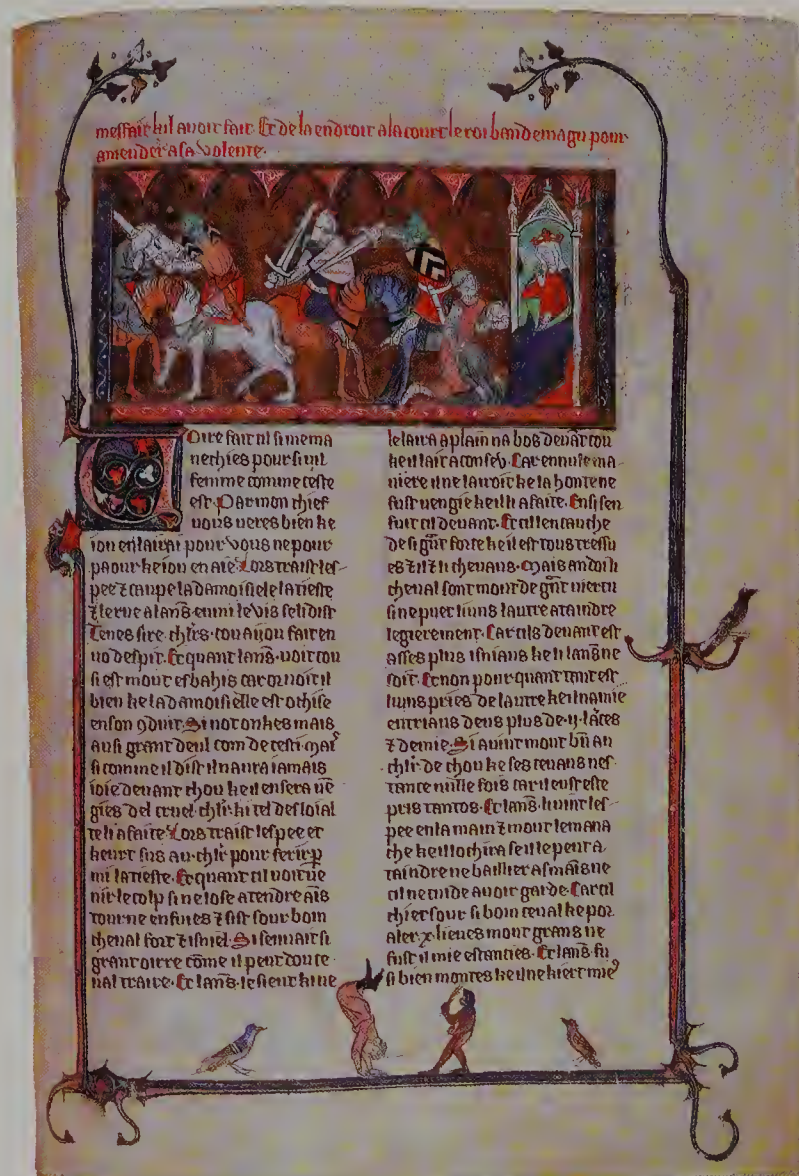 meffait kil auoit fait. Et de la endroit a la court le roi bandemagu pour
amender a sa volente.
Oire fait il si mema
nechies pour si uil
femme comme ceste
est. Par mon chief
uous ueres bien ke
iou en lairai pour vous ne pour
paour ke iou en aie. Lors traist les
pee & caupe la damoisiele la tieste
& le rue a lanš. enmi le vis se li dist
Tenes sire chlrs. cou aiiou fait en
uo despit. Et quant lanš. uoit cou
si est mout esbahis car or uoit il
bien ke la damoisielle est ochise
en son 9duit. Si not onkes mais
ausi grant deul com de cesti.
si comme il dist il naura iamais
ioie deuant chou keil en sera uē
gies del cruel chlr. ki tel desloial
te li a faite. Lors traist lespee et
keurt sus au chlr. pour ferir p
mi la tieste. Et quant cil uoit ue
nir le colp si ne lose atendre ais
tourne en fuies & sist sour boin
cheual fort & isniel. Si sen uait si
grant oirre cōme il peut dou ce
ual traire. Et lanš. le sieut ki ne
le laira a plain na bos deuāt cou
keil lait aconseu. Car en nule ma
niere il ne lairoit ke la honte ne
fust uengie keil li a faite. Ensi sen
fuit cil deuant. Et cil en cauche
de si gn̄t forte keil est tous tressu
es & il & li cheuaus. Mais andoi li
cheual sont mout de gn̄t uiertu
si ne puet li uns lautre ataindre
legierement. Car cils deuant est
asses plus isniaus ke li lanš. ne
soit. Et non pour quant tant est
li uns pries de lautre keil na mie
entriaus deus plus de .ij. lāces
& demie. Si auint mout bn̄ au
chlr. de chou ke ses ceuaus nes
tance nulle fois car il eust este
pris tantos. Et lanš. li uint les
pee en la main & mout le mana
che keil lochira se il le peut a
taindre ne baillier as mais ne
cil ne cuide auoir garde. Car cil
chier sour si boin ceual ke por
aler .x. lieues mout grans ne
fust il mie estanciés. Et lanš. fu
si bien montes keil ne kiert mie